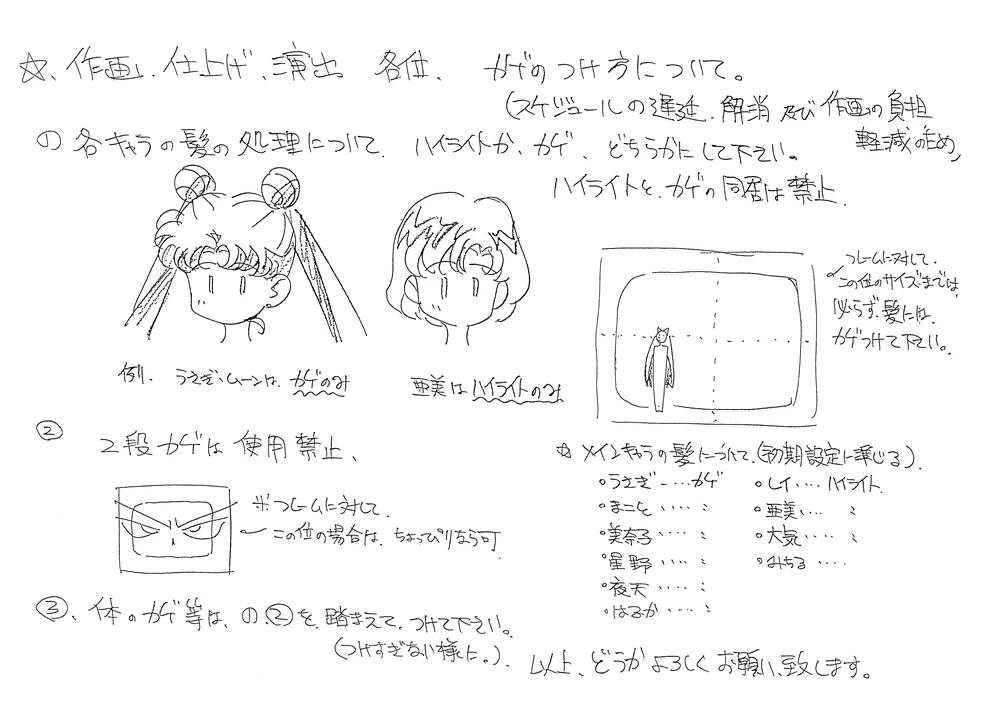 ☆、作画、仕上げ、演出 各位、 カゲのつけ方について。
(スケジュールの遅延、解消及び作画の負担
軽減の為、
① 各キャラの髪の処理について、ハイライトか、カゲ、どちらかにして下さい。
ハイライトと、カゲの同居は禁止、
例、 うさぎ・ムーンは、カゲのみ
亜美はハイライトのみ
フレームに対して、
この位のサイズまでは、
必らず、髪には、
カゲつけて下さい。
② 2段カゲは使用禁止、
※フレームに対して、
この位の場合は、ちょっぴりなら可、
☆ メインキャラの髪について、(初期設定に準じる)、
・うさぎ・・・・カゲ
・まこと・・・・ 〃
・美奈子・・・・ 〃
・星野・・・・ 〃
・夜天・・・・ 〃
・はるか・・・・ 〃
・レイ・・・・ハイライト
・亜美・・・・ 〃
・大気・・・・ 〃
・みちる・・・・
③、体のカゲ等は、①②を踏まえて、つけて下さい。
(つけすぎない様に。)、
以上、どうかよろしくお願い、致します。